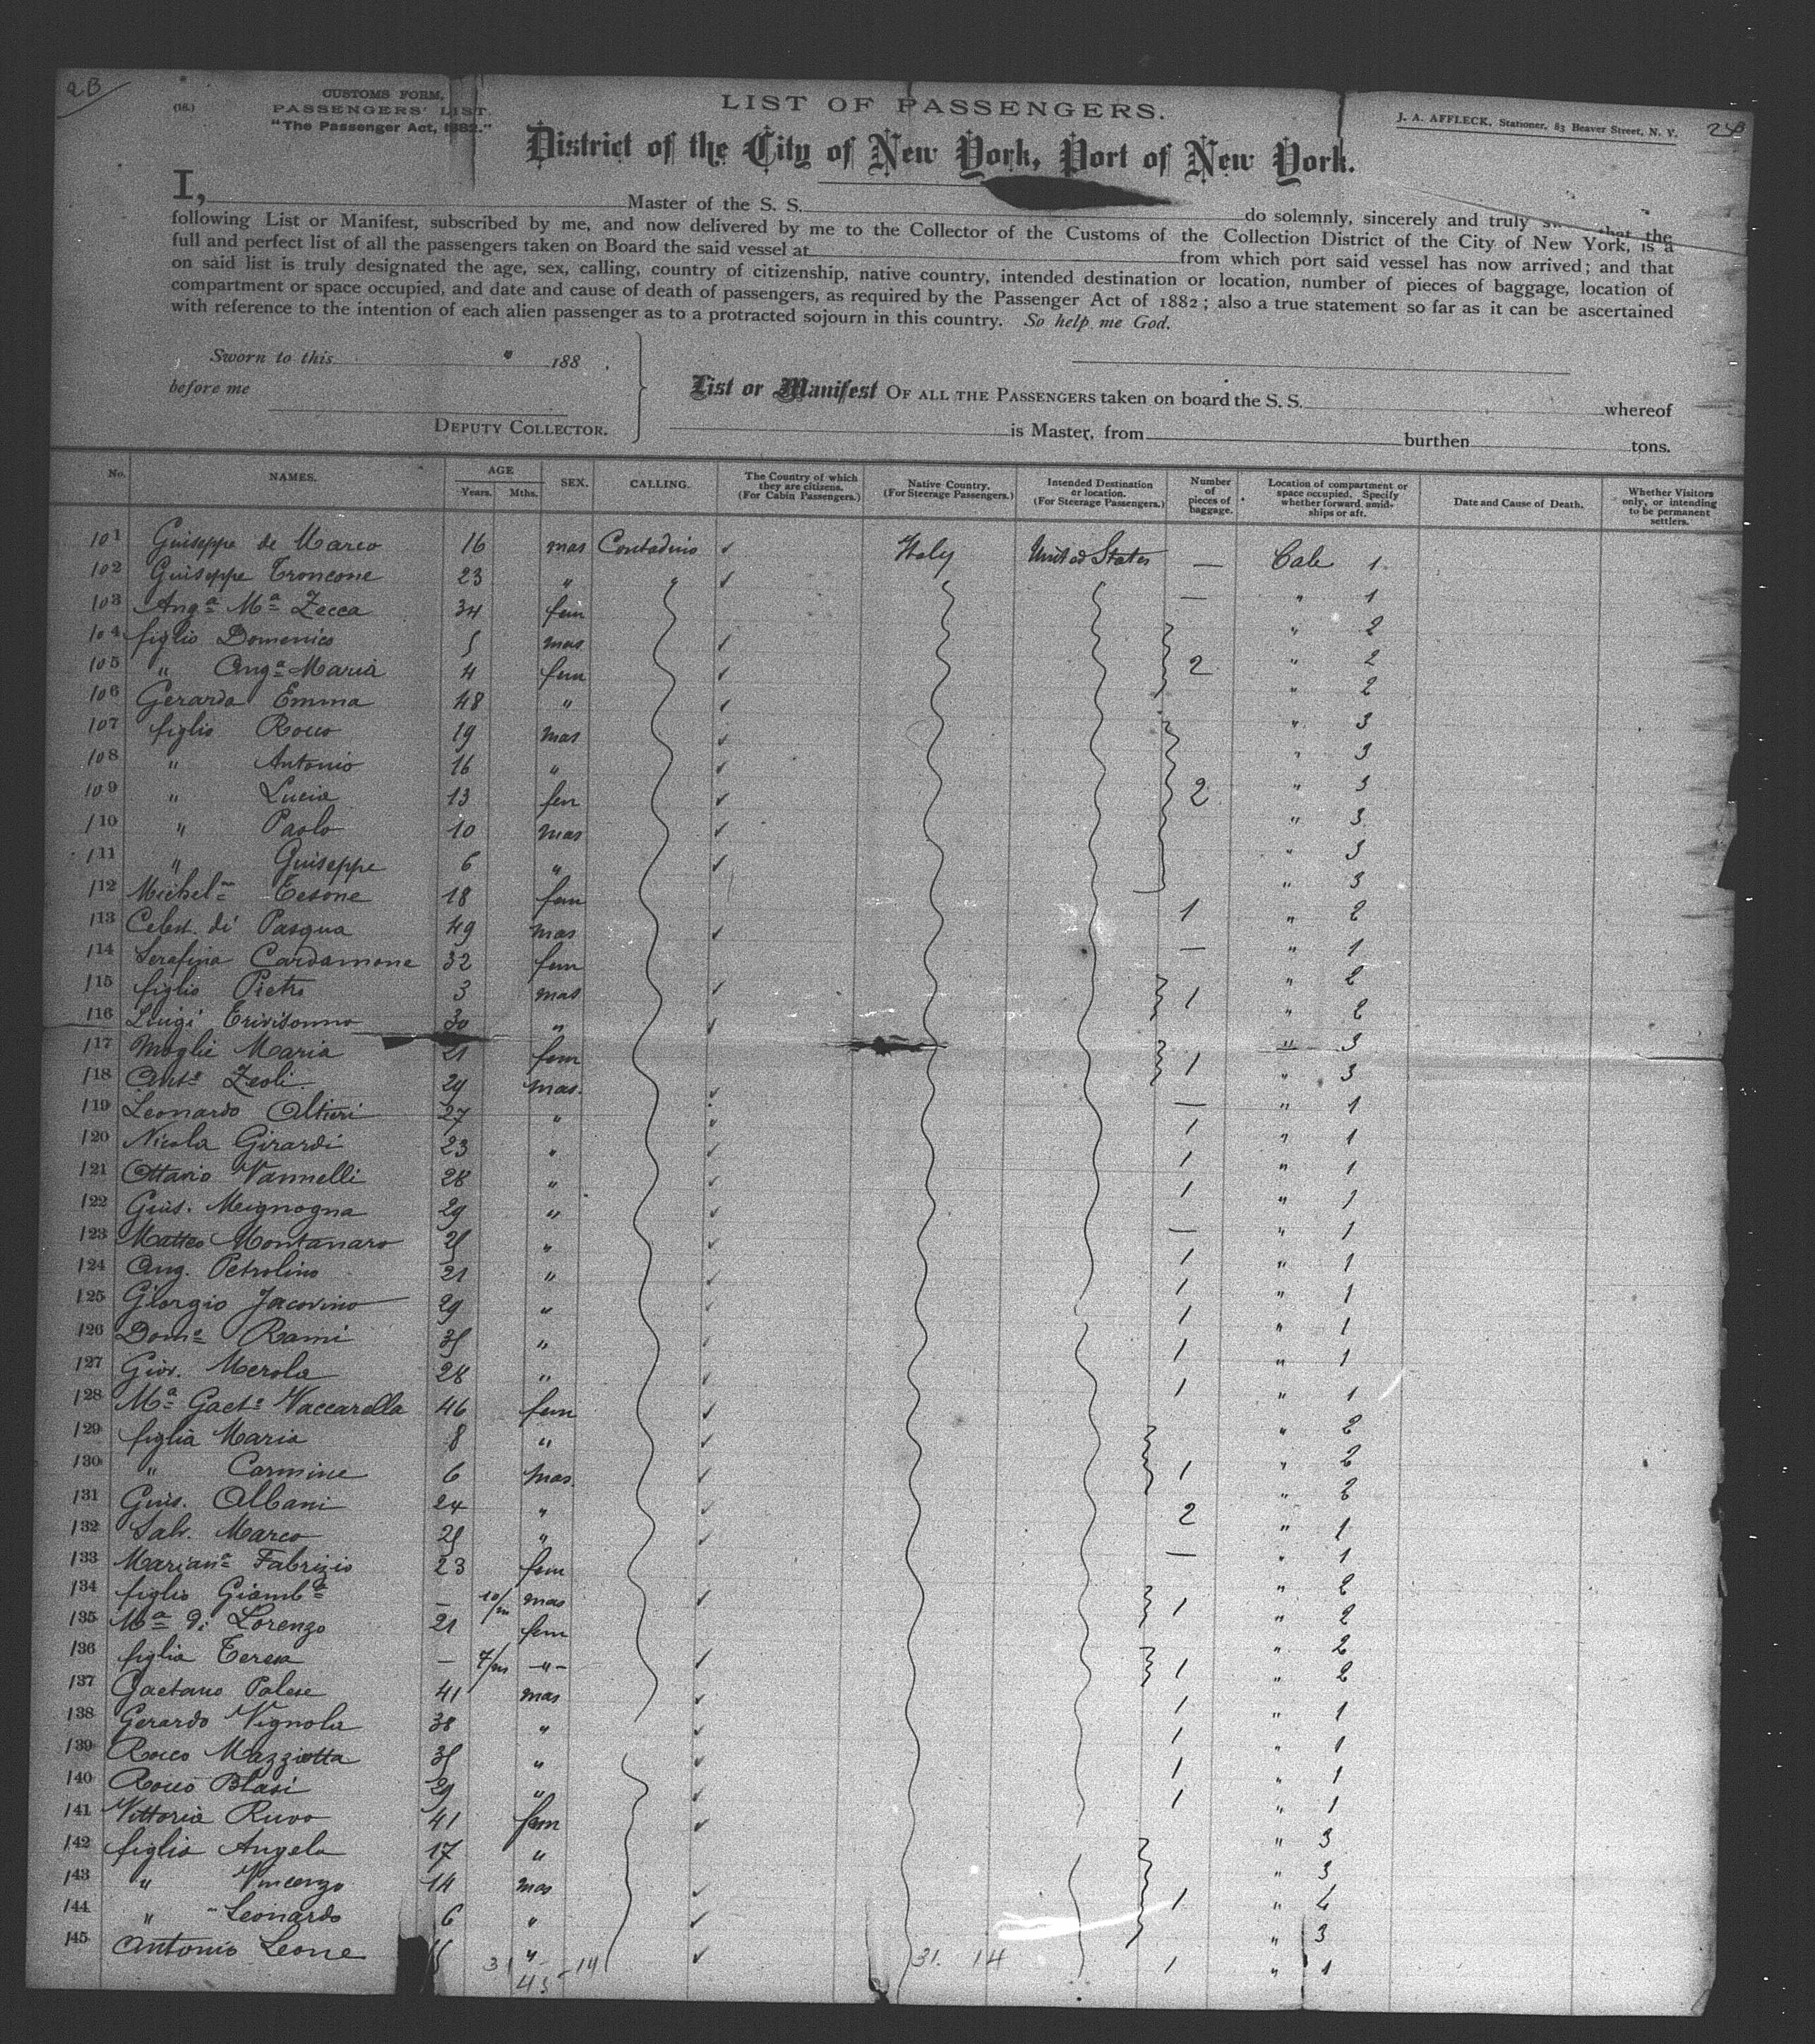 2B
(16.)
CUSTOMS FORM.
PASSENGERS' LIST.
"The Passenger Act, 1882."
LIST OF PASSENGERS.
J. A. AFFLECK, Stationer, 83 Beaver Street, N. Y.
District of the City of New York, Port of New York.
I, Master of the S. S. do solemnly, sincerely and truly that the
following List or Manifest, subscribed by me, and now delivered by me to the Collector of the Customs of the Collection District of the City of New York, is a
full and perfect list of all the passengers taken on Board the said vessel at from which port said vessel has now arrived; and that
on said list is truly designated the age, sex, calling, country of citizenship, native country, intended destination or location, number of pieces of baggage, location of
compartment or space occupied, and date and cause of death of passengers, as required by the Passenger Act of 1882; also a true statement so far as it can be ascertained
with reference to the intention of each alien passenger as to a protracted sojourn in this country. So help me God.
Sworn to this 188 .
before me
DEPUTY COLLECTOR.
List or Manifest OF ALL THE PASSENGERS taken on board the S. S. whereof
is Master, from burthen tons.
No. NAMES. AGE Years. Mths. SEX. CALLING. The Country of which they are citizens. (For Cabin Passengers.) Native Country. (For Steerage Passengers.) Intended Destination or location. (For Steerage Passengers.) Number of pieces of baggage. Location of compartment or space occupied. Specify whether forward, amidships or aft. Date and Cause of Death. Whether Visitors only, or intending to be permanent settlers.
101 Guiseppe de Marco 16 mas Contadino Italy United States — Cale 1
102 Guiseppe Troncone 23 " " — " 1
103 Anga Ma Zecca 34 fem " 2
104 figlio Domenico 5 mas " 2
105 " Anga Maria 4 fem 2 " 2
106 Gerarda Emma 48 " " 3
107 figlio Rocco 19 mas " 3
108 " Antonio 16 " " 3
109 " Lucia 13 fem 2 " 3
110 " Paolo 10 mas " 3
111 " Guiseppe 6 " " 3
112 Michela Tesone 18 fem 1 " 2
113 Celest. di Pasqua 49 mas — " 1
114 Serafina Cardamone 32 fem " 2
115 figlio Pietro 3 mas 1 " 2
116 Luigi Trivisonno 30 " " 3
117 Moglie Maria 21 fem 1 " 3
118 Anto Zeoli 29 mas. — " 1
119 Leonardo Altieri 27 " 1 " 1
120 Nicola Girardi 23 " 1 " 1
121 Ottavio Vannelli 28 " 1 " 1
122 Gius. Mignogna 29 " — " 1
123 Matteo Montanaro 25 " 1 " 1
124 Ang. Petrolino 21 " 1 " 1
125 Giorgio Jacovino 29 " 1 " 1
126 Domo Raimi 35 " 1 " 1
127 Giov. Merola 28 " 1 " 1
128 Ma Gaeta Vaccarella 46 fem " 2
129 figlia Maria 8 " " 2
130 " Carmine 6 mas. 1 " 2
131 Guis. Albani 24 " 2 " 1
132 Salv. Marco 25 " — " 1
133 Mariana Fabrizio 23 fem " 2
134 figlio Giamba — 10/m mas 1 " 2
135 Ma di Lorenzo 21 fem " 2
136 figlia Teresa — 7/m -"- 1 " 2
137 Gaetano Palese 41 mas 1 " 1
138 Gerardo Vignola 38 " 1 " 1
139 Rocco Mazziotta 35 " 1 " 1
140 Rocco Blasi 29 " 1 " 1
141 Vittoria Ruvo 41 fem " 3
142 figlia Angela 17 " " 3
143 " Vincenzo 14 mas 1 " 4
144 " Leonardo 6 " " 3
145 Antonio Leone " 1 " 1
31 - 14 31. 14
45